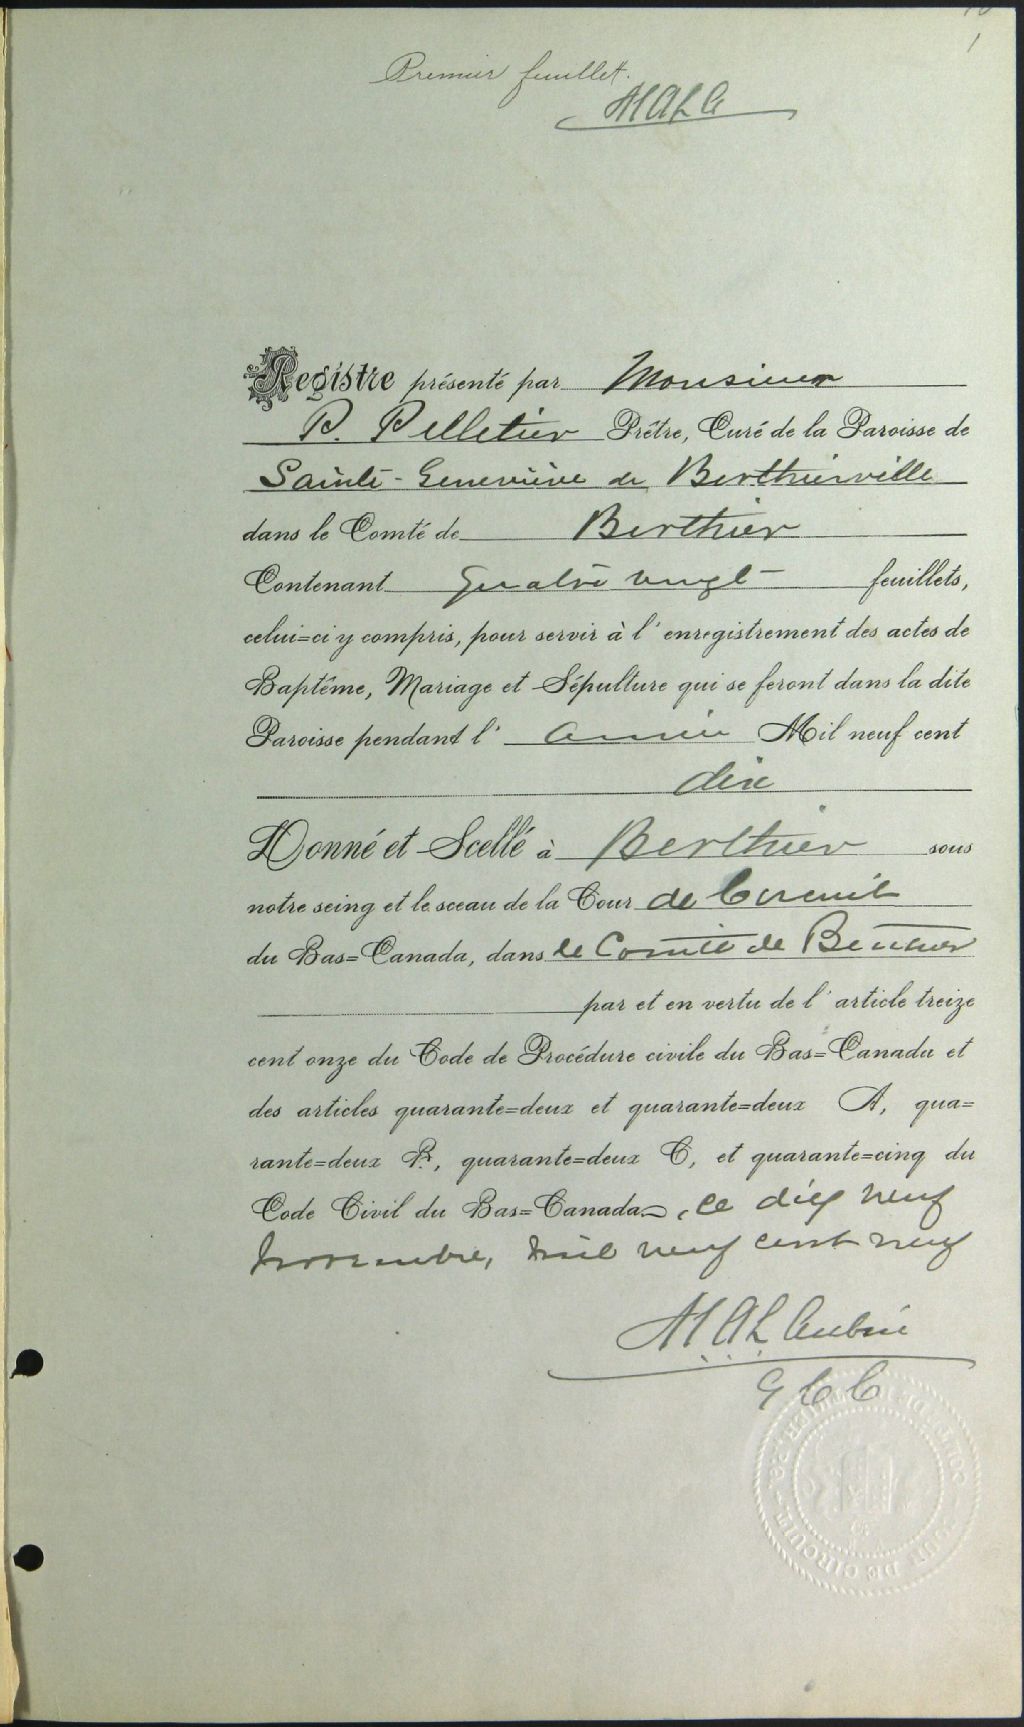 1
Premier feuillet.
MALA
Registre présenté par Monsieur
P. Pelletier Prêtre, Curé de la Paroisse de
Sainte-Geneviève de Berthierville
dans le Comté de Berthier
Contenant Quatre vingt feuillets,
celui=ci y compris, pour servir à l'enregistrement des actes de
Baptême, Mariage et Sépulture qui se feront dans la dite
Paroisse pendant l'année Mil neuf cent
dix
Donné et Scellé à Berthier sous
notre seing et le sceau de la Cour de Circuit
du Bas=Canada, dans le Comté de Berthier
par et en vertu de l'article treize
cent onze du Code de Procédure civile du Bas=Canada et
des articles quarante=deux et quarante=deux A, qua=
rante=deux B, quarante=deux C, et quarante=cinq du
Code Civil du Bas=Canada, ce dix neuf
novembre, mil neuf cent neuf
MAL Aubin
G C C
COUR DE CIRCUIT